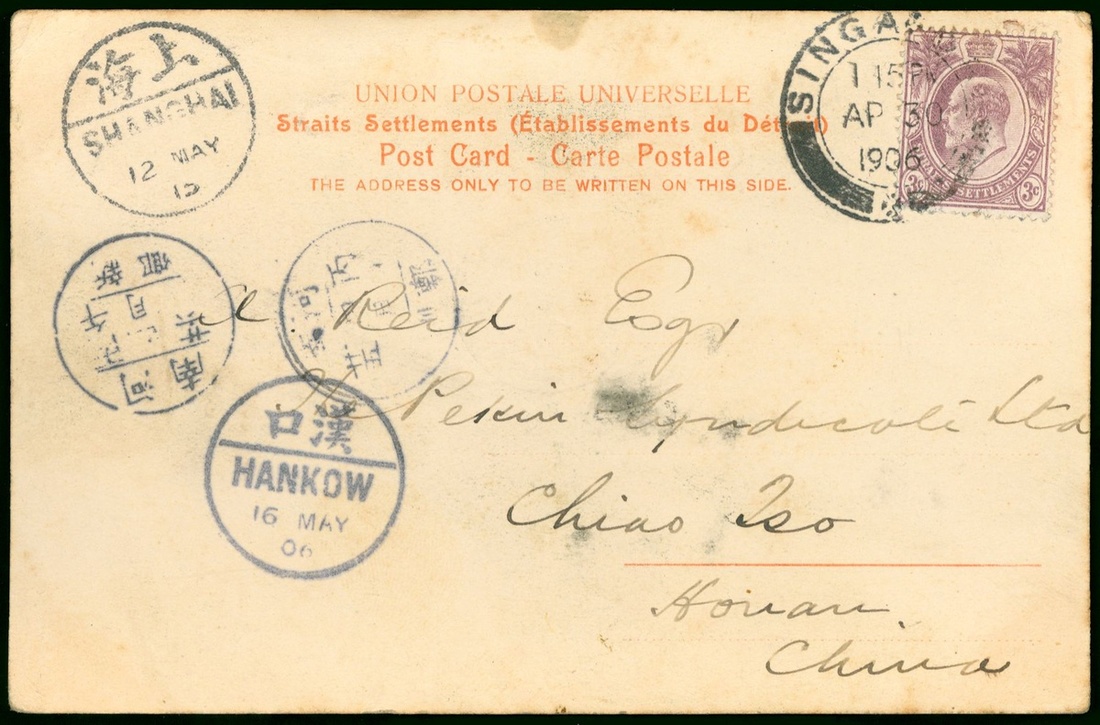 UNION POSTALE UNIVERSELLE
Straits Settlements (Établissements du Détroit)
Post Card - Carte Postale
THE ADDRESS ONLY TO BE WRITTEN ON THIS SIDE.
上海
SHANGHAI
12 MAY
SINGA
1 15 PM
AP 30
1906
STRAITS SETTLEMENTS
3c 3c
Reid Esqr
Pekin Syndicate Ltd
Chiao Tso
Honan
China
口漢
HANKOW
16 MAY
06
河南